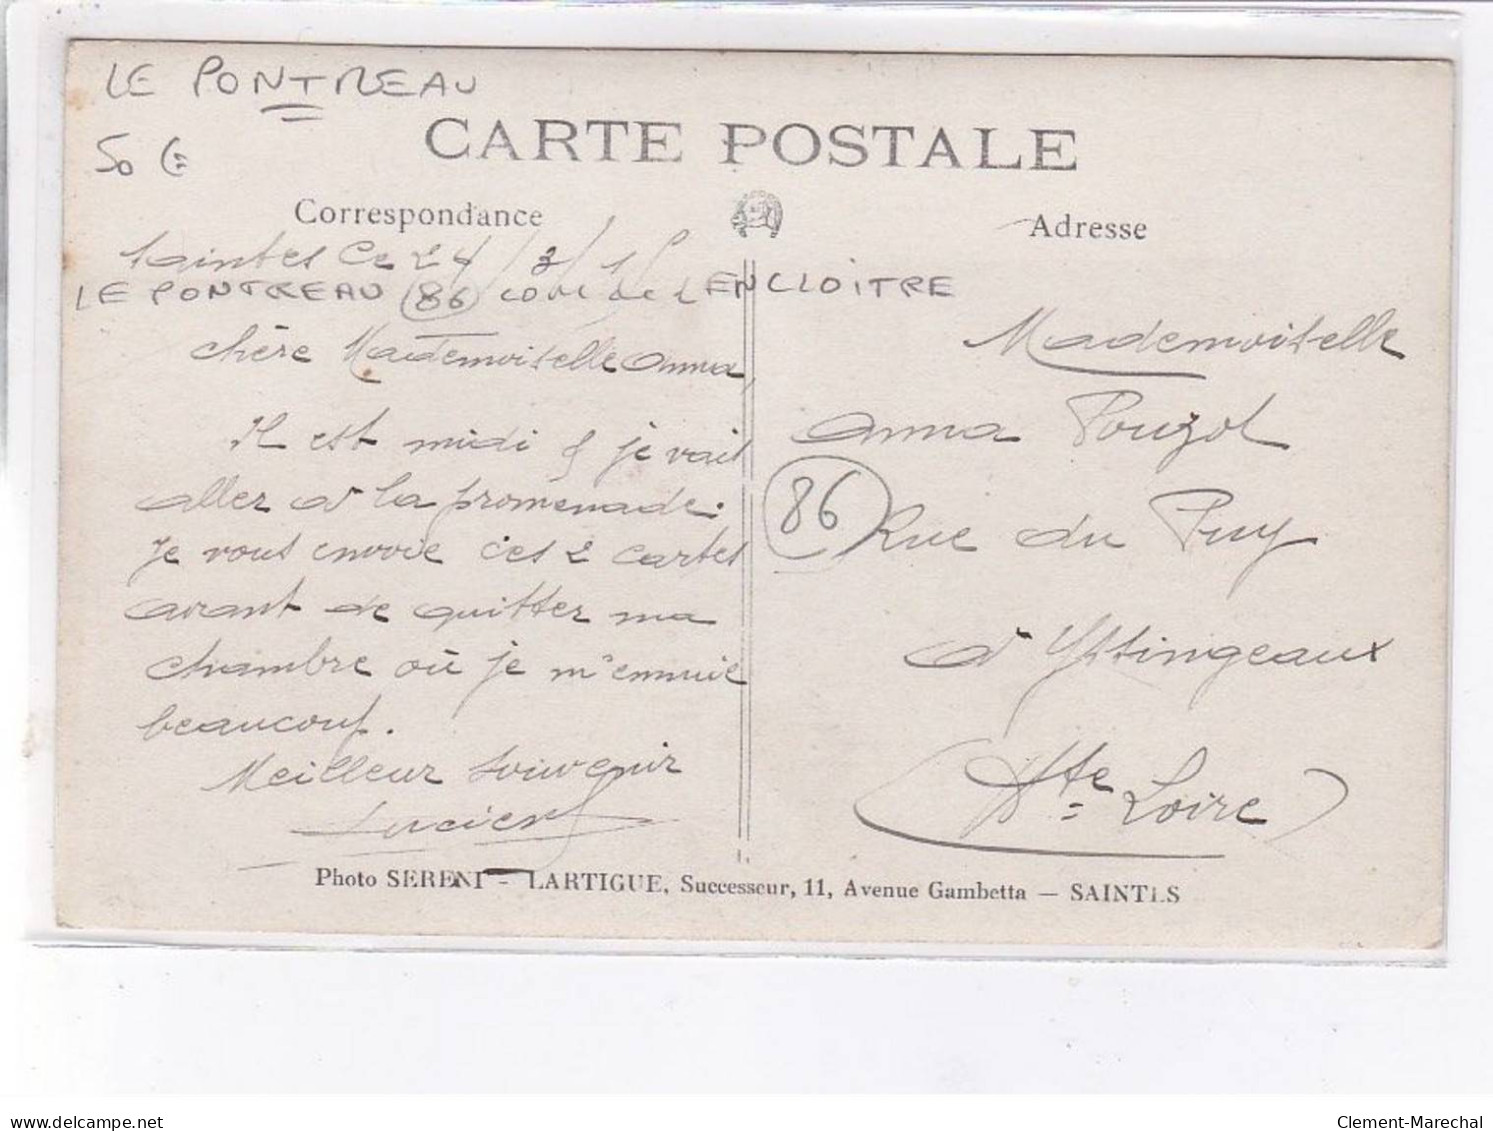 LE PONTREAU
50 €
CARTE POSTALE
Correspondance
Adresse
Saintes Ce 24/3/15
LE PONTREAU (86) LENCLOITRE
chère Mademoiselle Anna,
Il est midi & je vais
aller à la promenade.
Je vous envoie ces 2 cartes
avant de quitter ma
chambre où je m'ennuie
beaucoup.
Meilleur souvenir
Lucien
Mademoiselle
Anna Pouzol
86
Rue du Puy
à Yssingeaux
(Hte Loire)
Photo SERENI - LARTIGUE, Successeur, 11, Avenue Gambetta — SAINTES
www.delcampe.net
Clement-Marechal